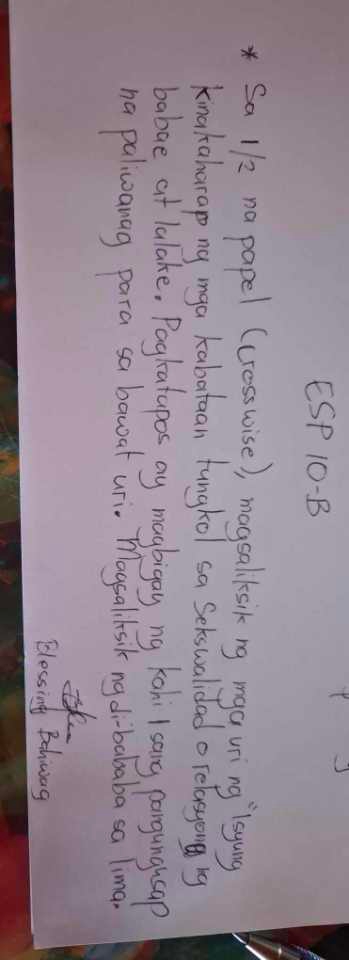 ESP 10-B
* Sa 1/2 na papel (crosswise), magsaliksik ng mga uri ng "Isyung
kinakaharap ng mga kabataan tungkol sa Sekswalidad o relasyong ng
babae at lalake. Pagkatapos ay magbigay ng kahi 1 sang pangungusap
na paliwanag para sa bawat uri. Magsaliksik ng di-bababa sa lima.
Blessing Bahiwag